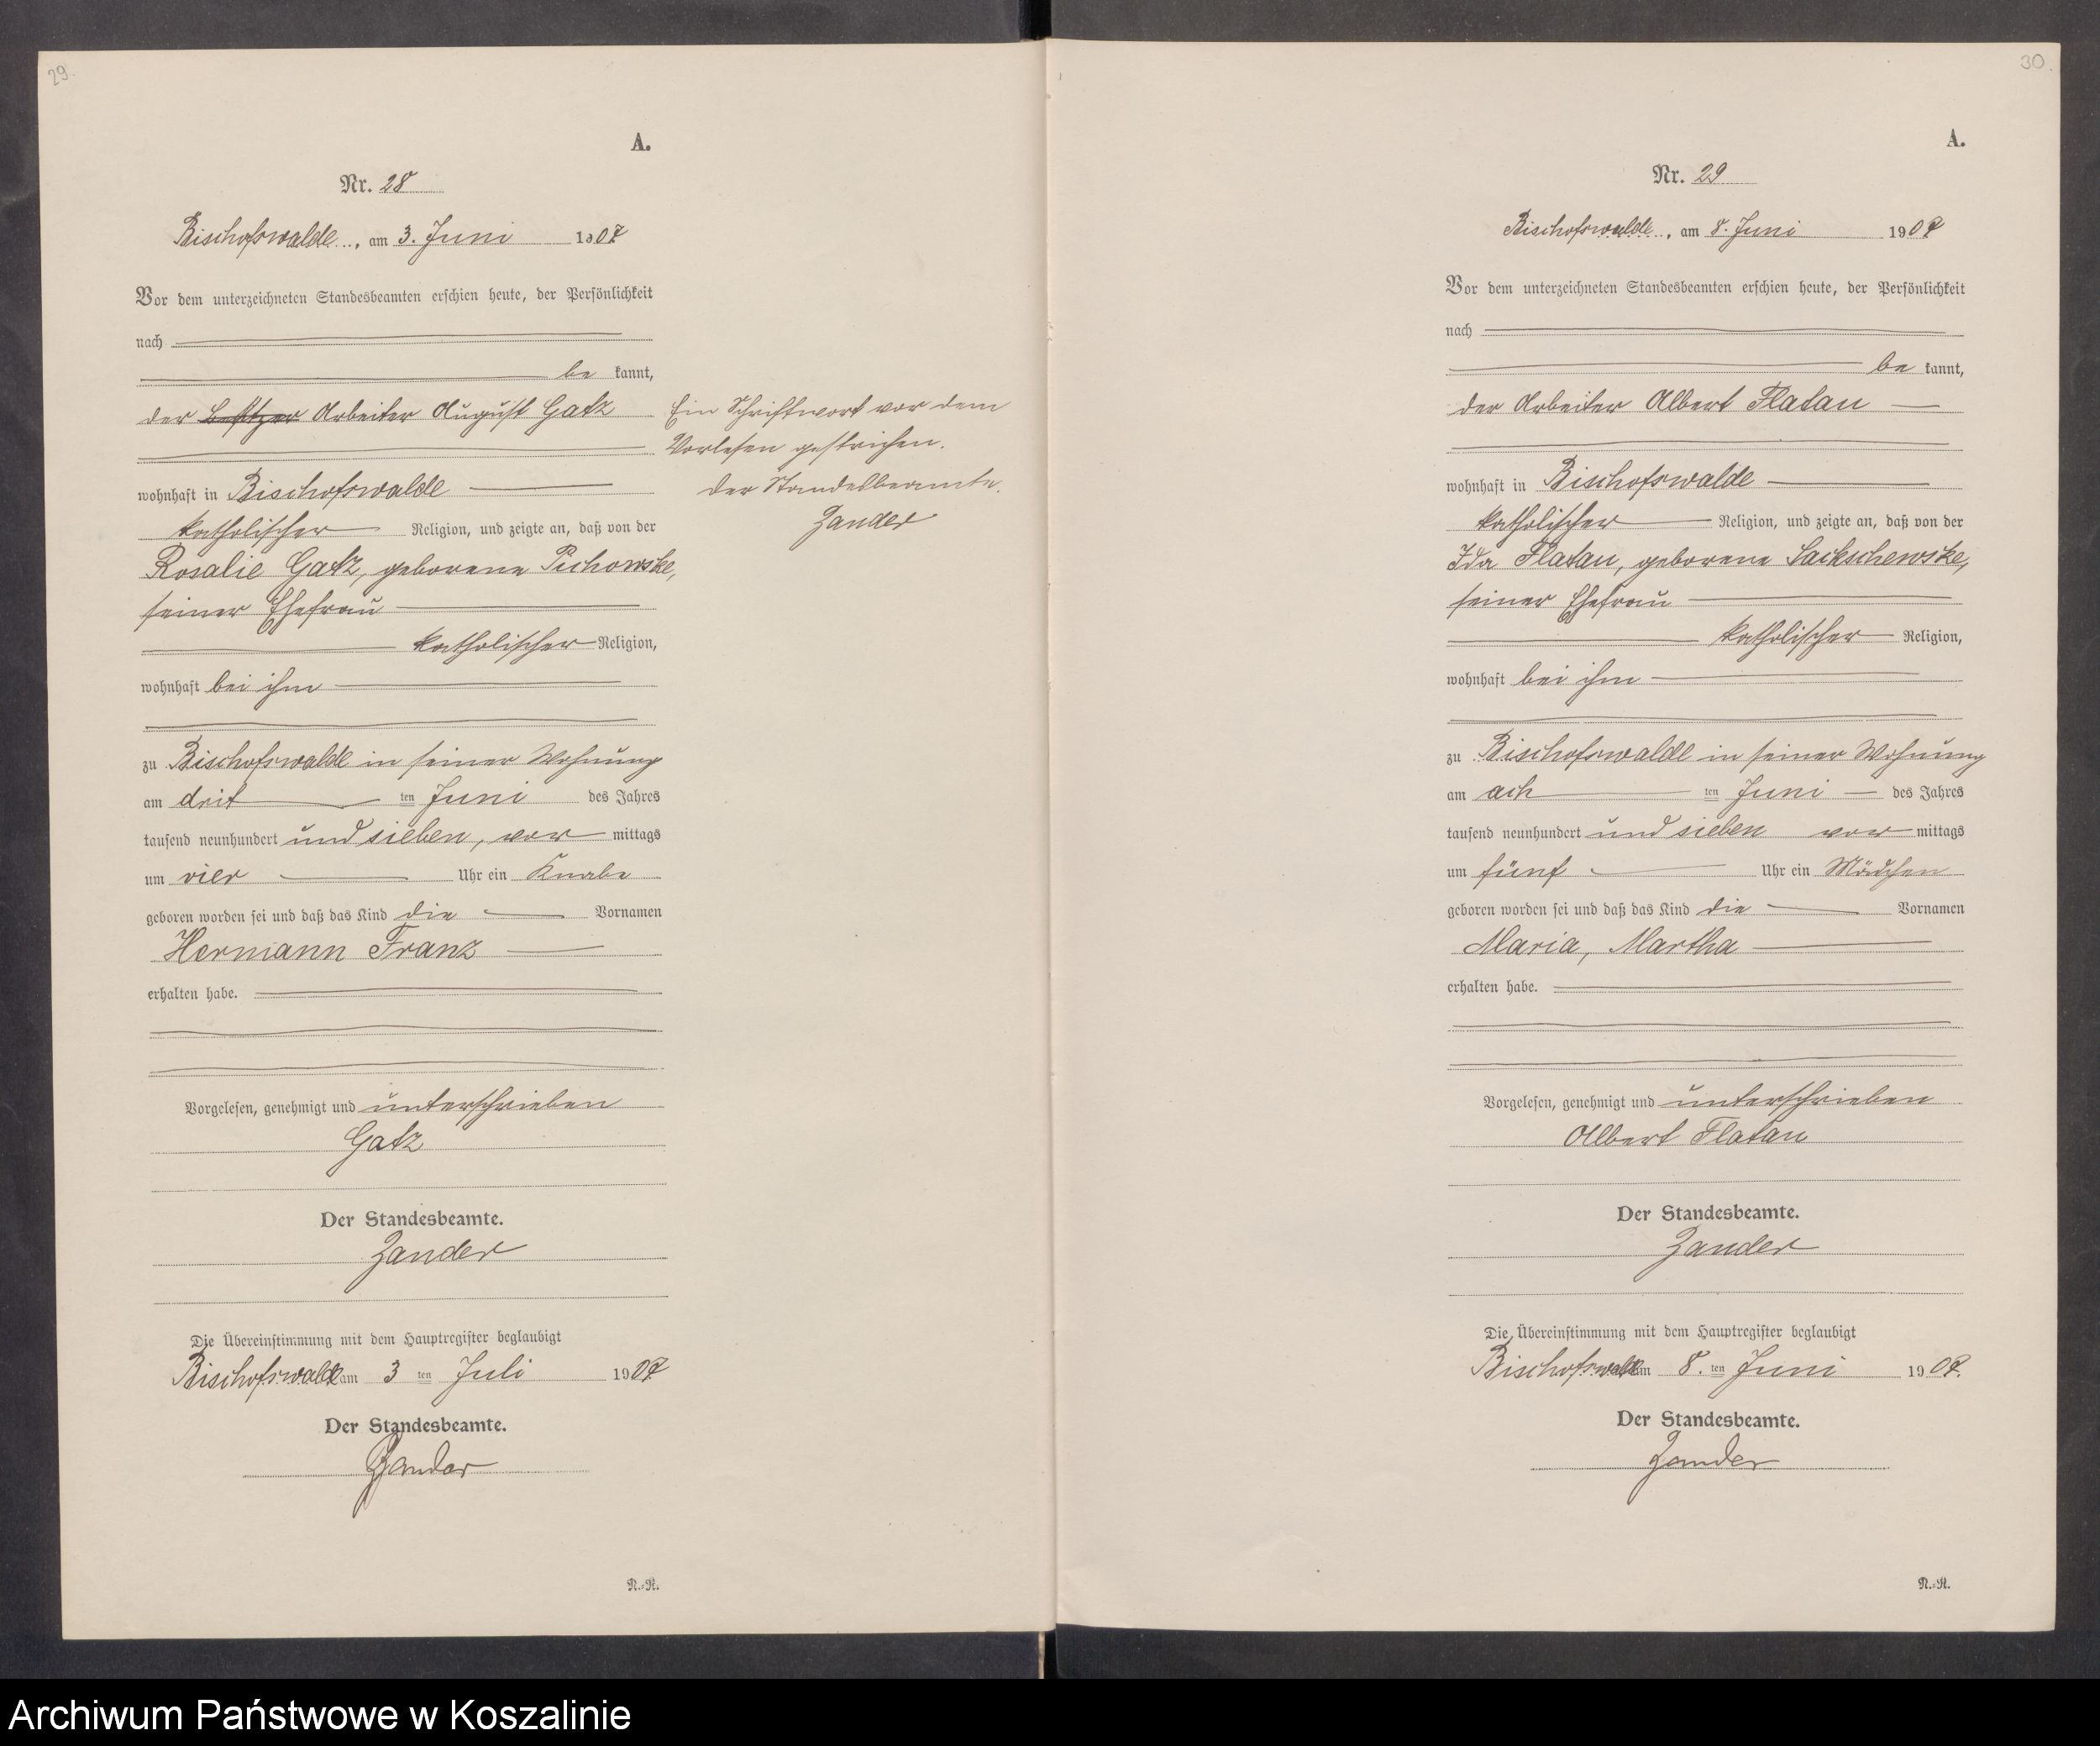 29.
A.
Nr. 28
Bischofswalde, am 3. Juni 1907
Vor dem unterzeichneten Standesbeamten erschien heute, der Persönlichkeit
nach
be kannt,
der Besitzer Arbeiter August Gatz
wohnhaft in Bischofswalde
katholischer Religion, und zeigte an, daß von der
Rosalie Gatz, geborene Pichowske,
seiner Ehefrau
katholischer Religion,
wohnhaft bei ihm
zu Bischofswalde in seiner Wohnung
am drit ten Juni des Jahres
tausend neunhundert und sieben, vor mittags
um vier Uhr ein Knabe
geboren worden sei und daß das Kind die Vornamen
Hermann Franz
erhalten habe.
Vorgelesen, genehmigt und unterschrieben
Gatz
Der Standesbeamte.
Zander
Die Übereinstimmung mit dem Hauptregister beglaubigt
Bischofswalde am 3 ten Juli 1907
Der Standesbeamte.
Zander
N.=R.
Ein Schriftwort vor dem
Vorlesen gestrichen.
Der Standesbeamte.
Zander
30.
A.
Nr. 29
Bischofswalde, am 8. Juni 1907
Vor dem unterzeichneten Standesbeamten erschien heute, der Persönlichkeit
nach
be kannt,
der Arbeiter Albert Flatau
wohnhaft in Bischofswalde
katholischer Religion, und zeigte an, daß von der
Ida Flatau, geborene Sackschewske,
seiner Ehefrau
katholischer Religion,
wohnhaft bei ihm
zu Bischofswalde in seiner Wohnung
am ach ten Juni des Jahres
tausend neunhundert und sieben vor mittags
um fünf Uhr ein Mädchen
geboren worden sei und daß das Kind die Vornamen
Maria, Martha
erhalten habe.
Vorgelesen, genehmigt und unterschrieben
Albert Flatau
Der Standesbeamte.
Zander
Die Übereinstimmung mit dem Hauptregister beglaubigt
Bischofswalde am 8. ten Juni 1907.
Der Standesbeamte.
Zander
N.=R.
Archiwum Państwowe w Koszalinie